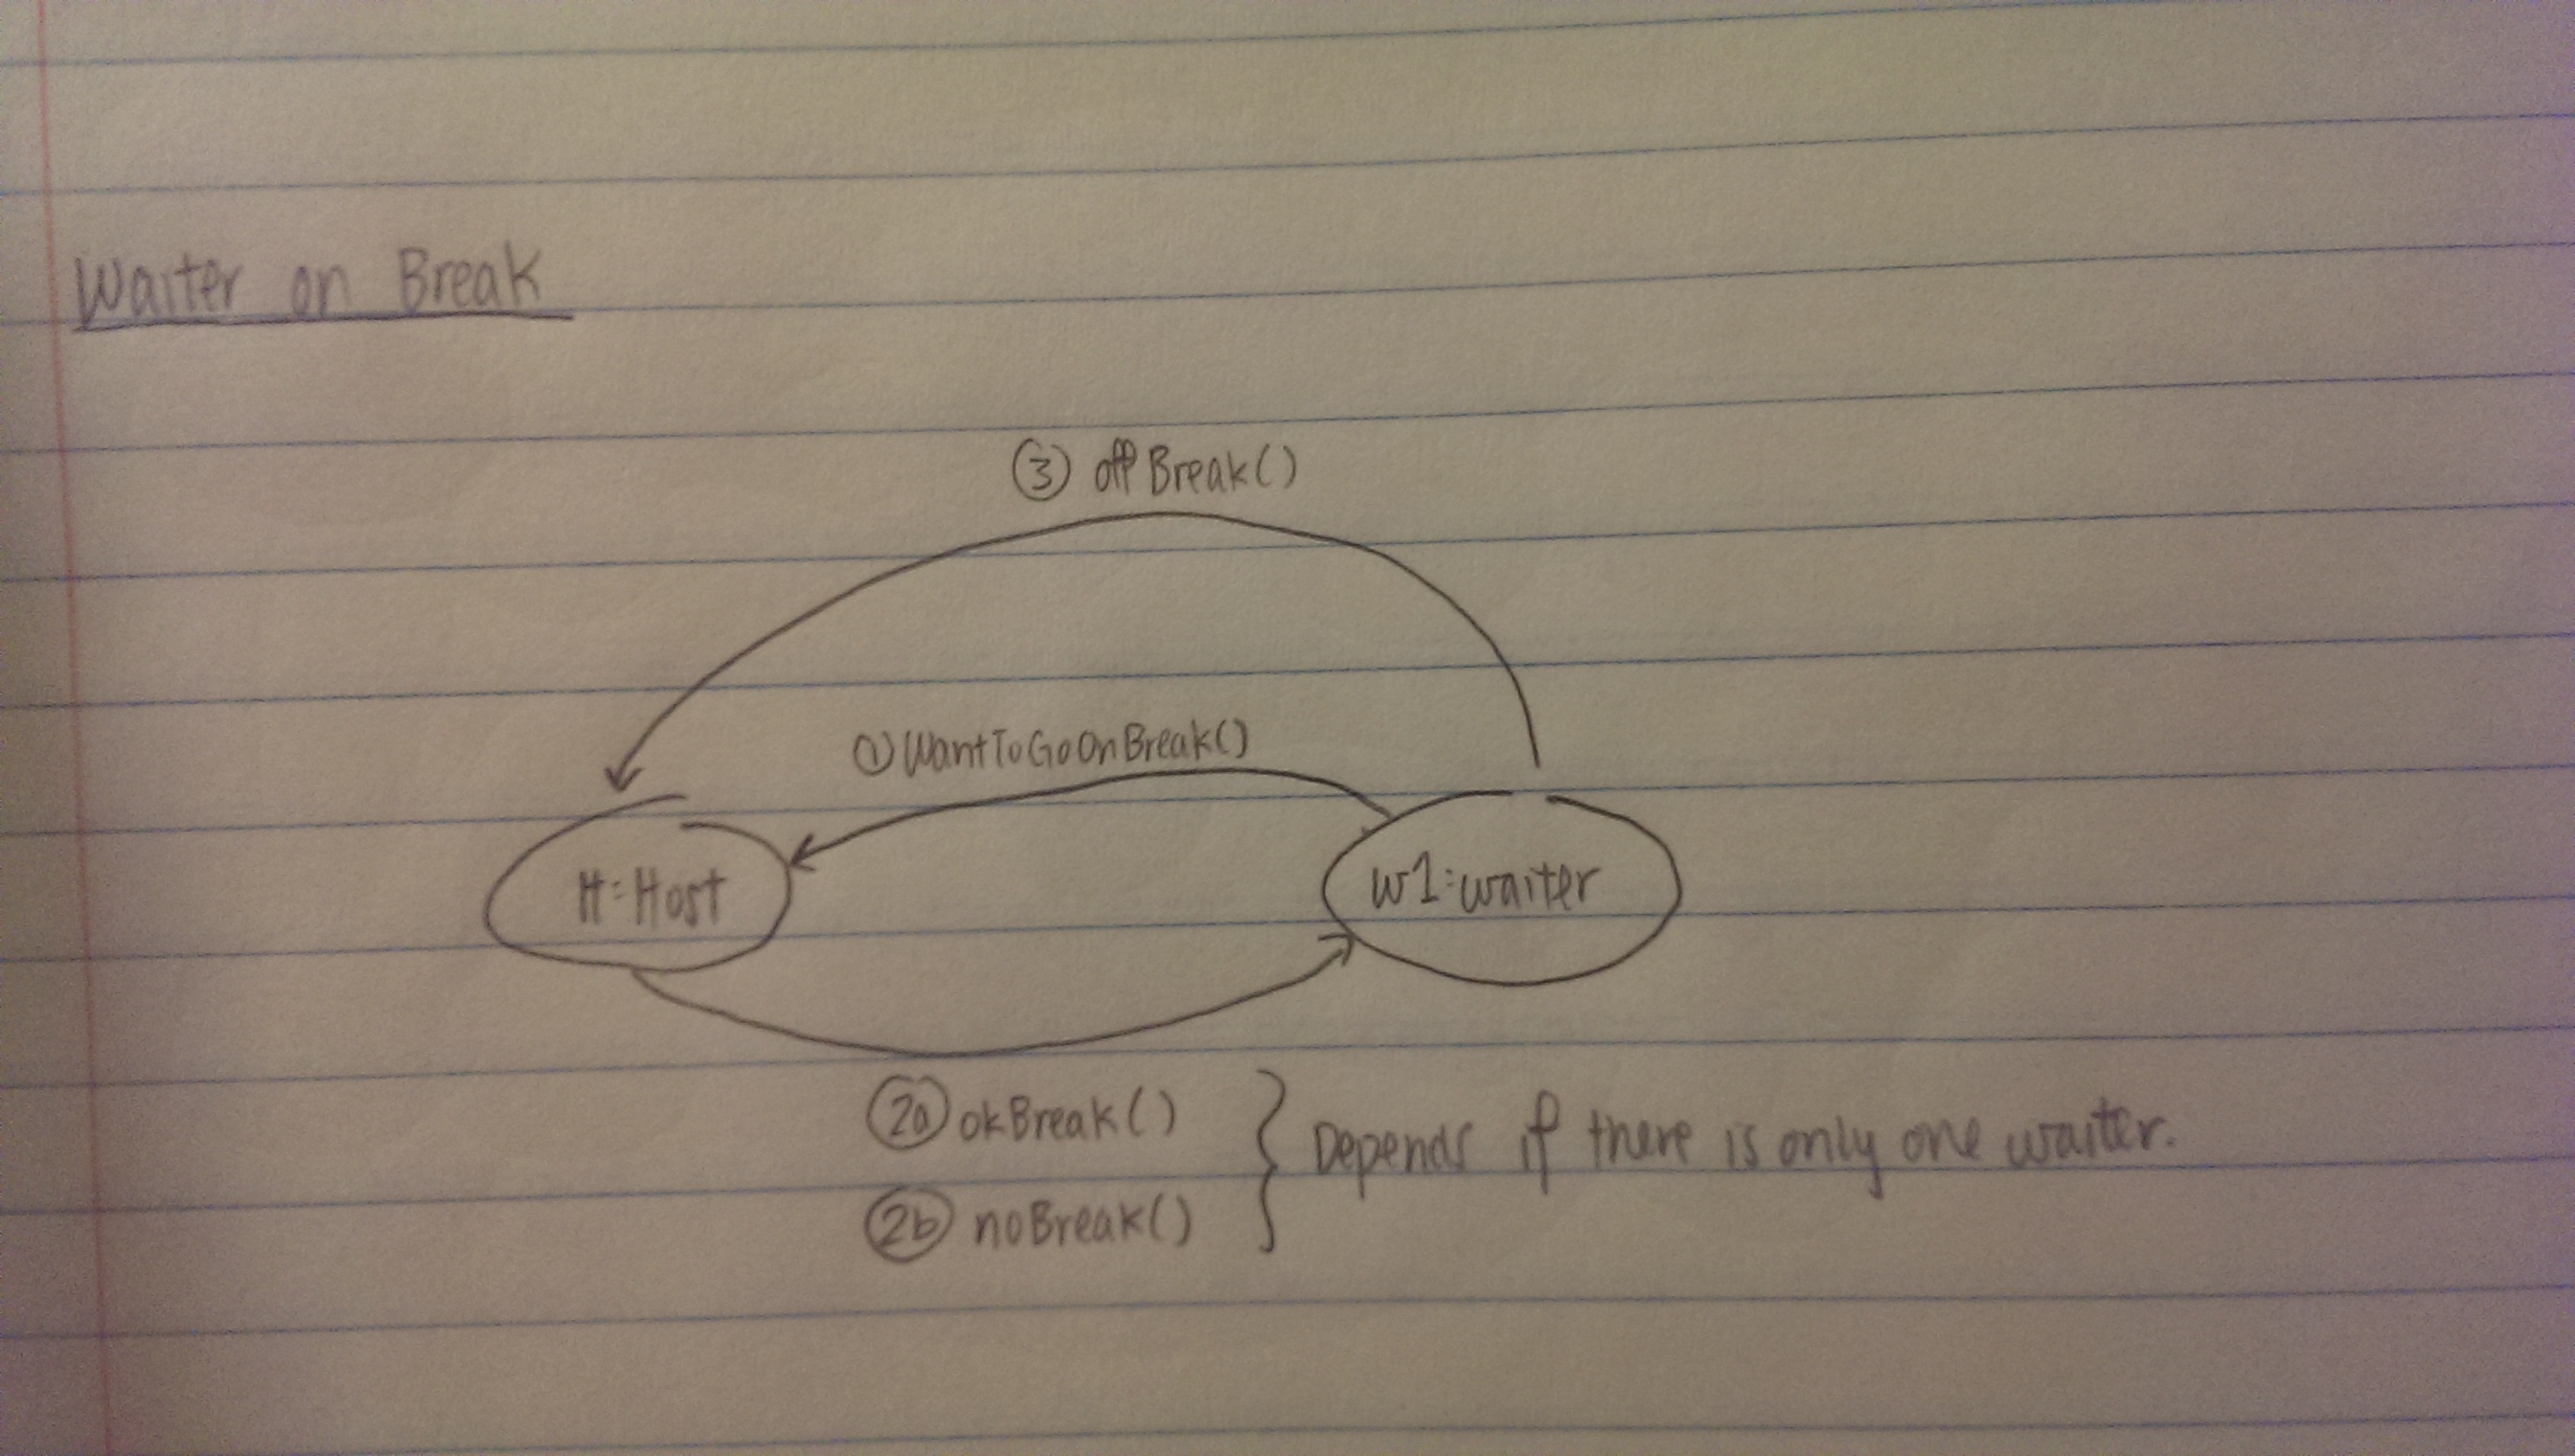 Waiter on Break
③ offBreak()
① WantToGoOnBreak()
H:Host
W1:waiter
2a okBreak()
2b noBreak()
} Depends if there is only one waiter.